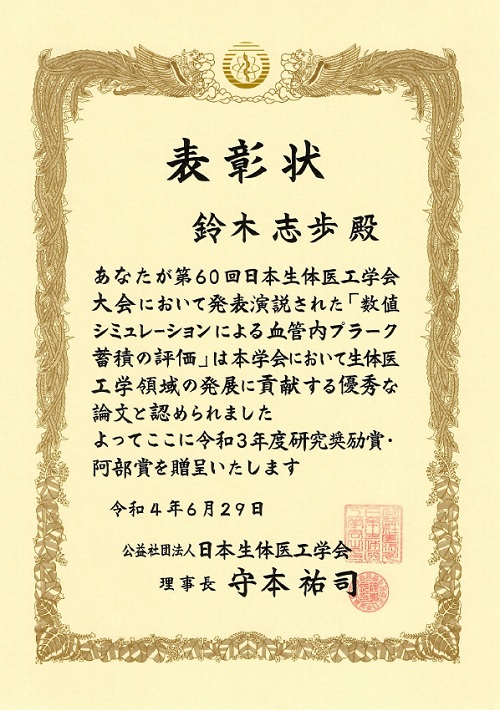 表彰状
鈴木志歩殿
あなたが第60回日本生体医工学会
大会において発表演説された「数値
シミュレーションによる血管内プラーク
蓄積の評価」は本学会において生体医
工学領域の発展に貢献する優秀な
論文と認められました
よってここに令和3年度研究奨励賞・
阿部賞を贈呈いたします
令和4年6月29日
公益社団法人日本生体医工学会
理事長 守本祐司